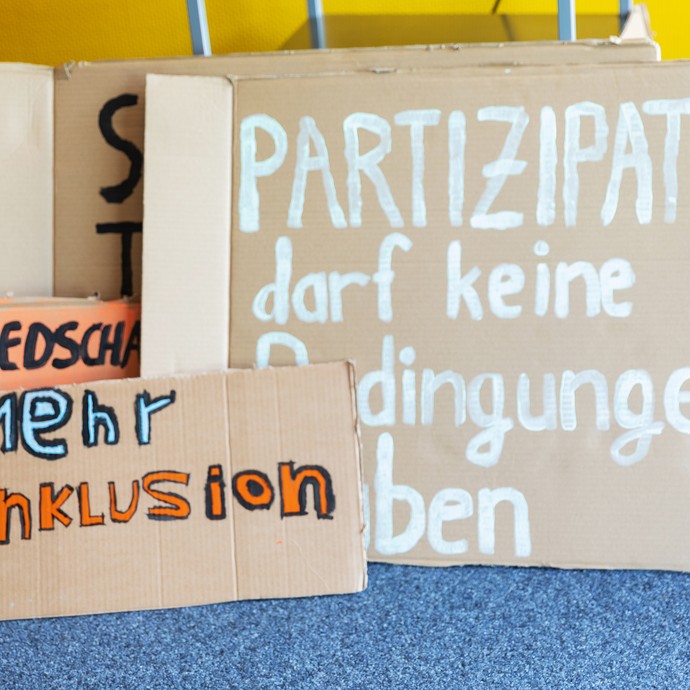 S
T
EDSCHA
mehr
nKLUSion
PARTIZIPAT
darf keine
dingunge
aben